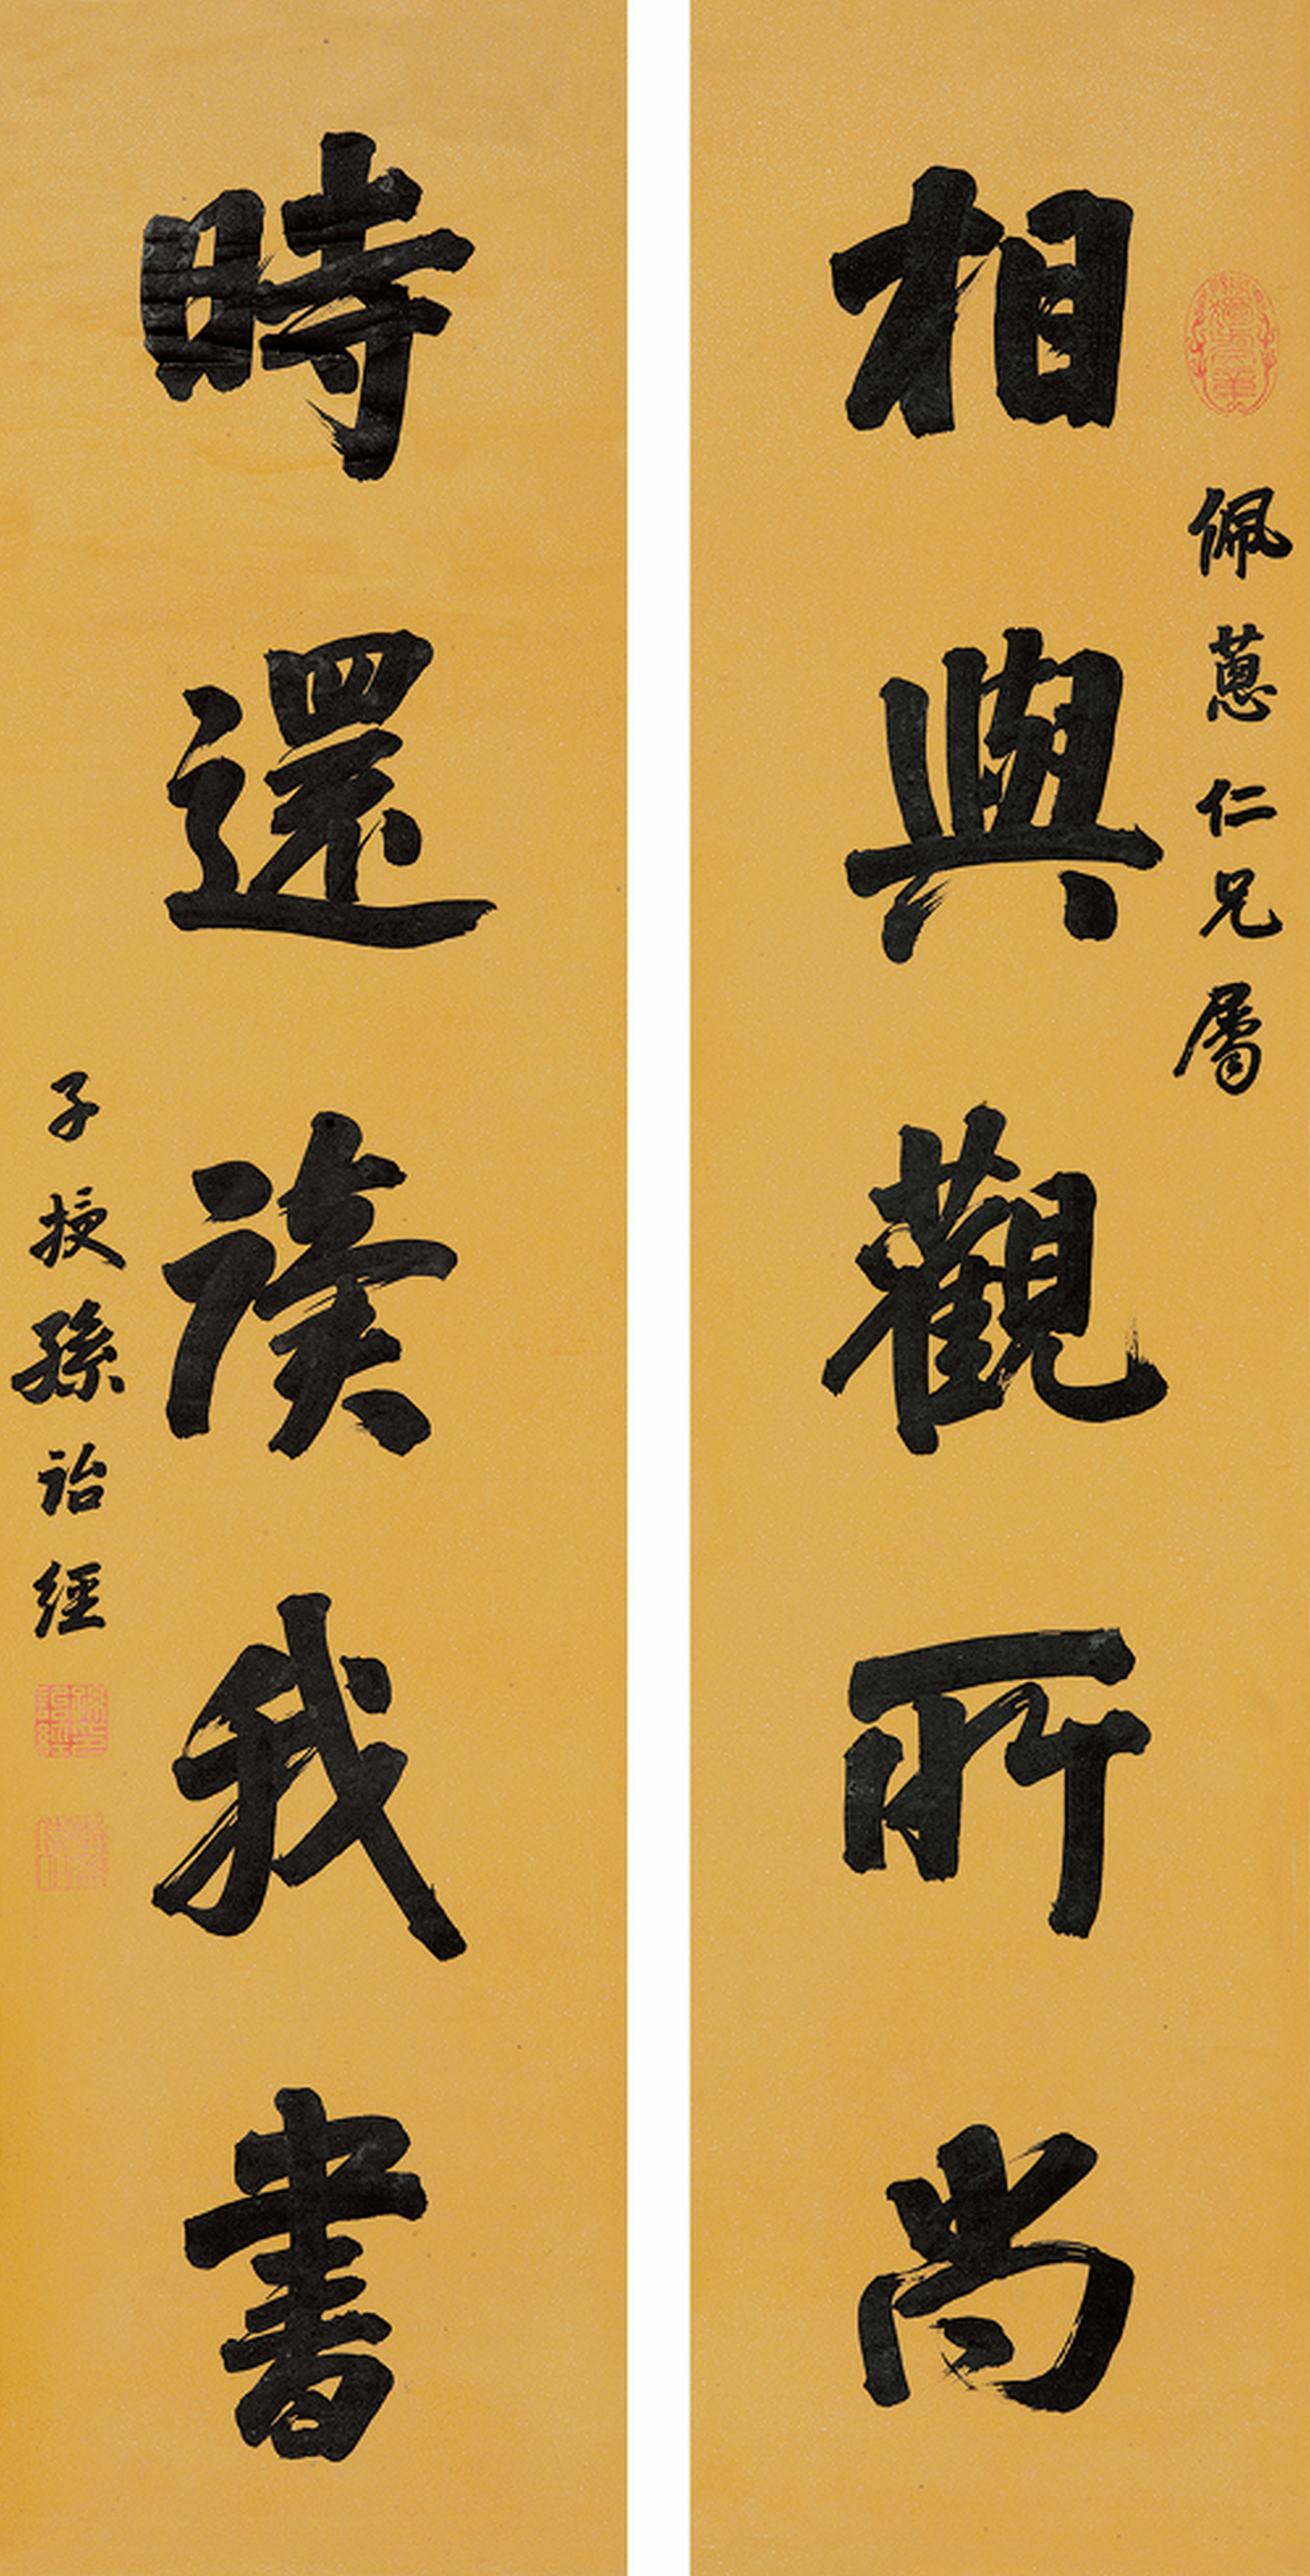 佩蔥仁兄屬
相與觀所尚
時還讀我書
子授孫詒經